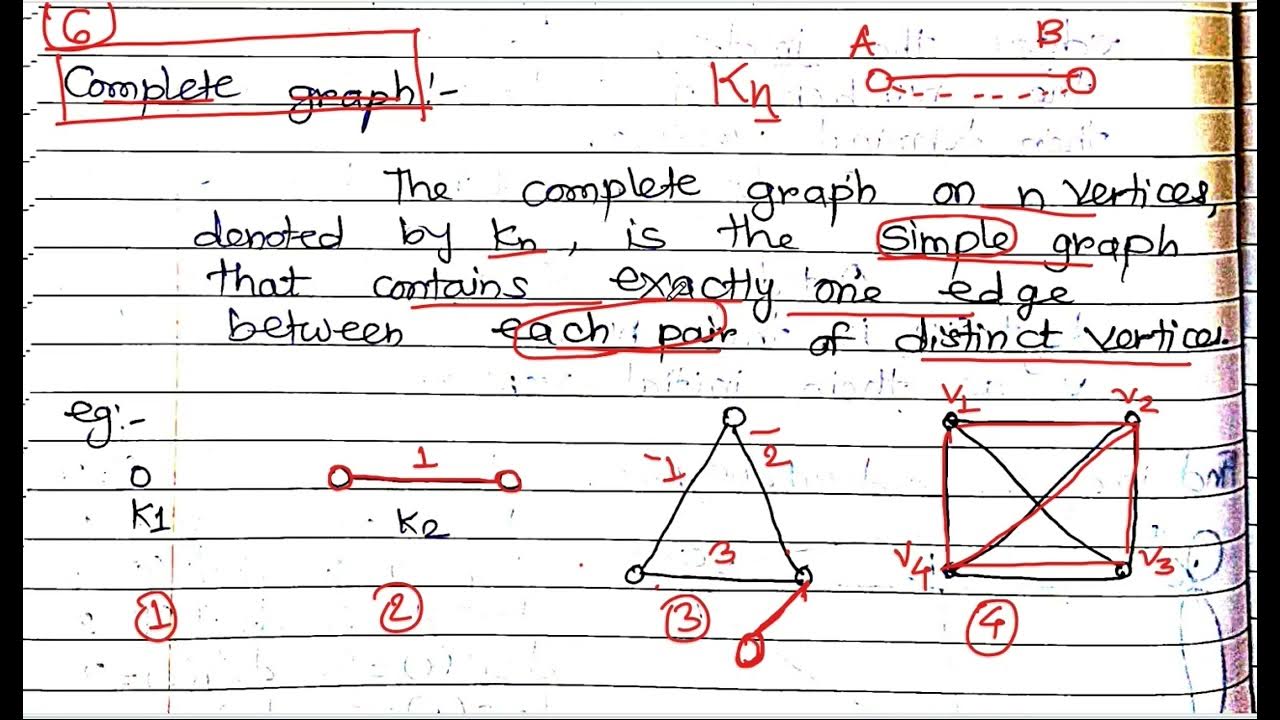 6
Complete graph :-
Kn
A B
The complete graph on n vertices,
denoted by Kn, is the simple graph
that contains exactly one edge
between each pair of distinct vertices.
eg:-
K1
1
K2
1 2
3
V1 V2
V4 V3
1 2 3 4